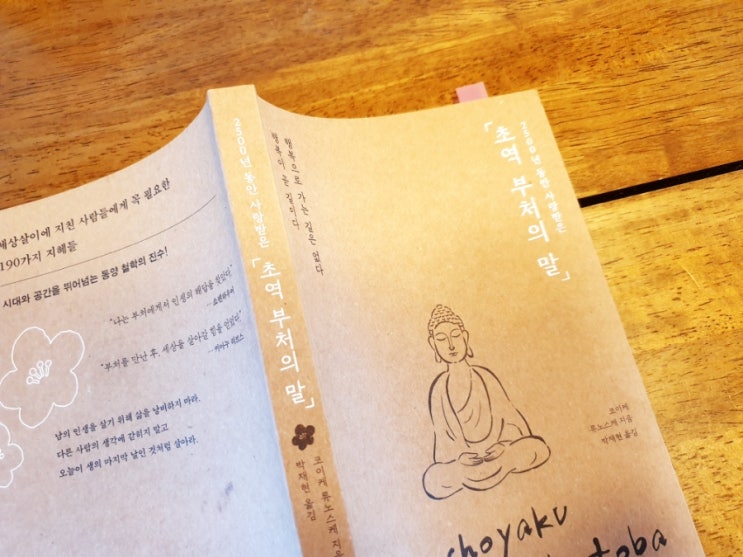 세상살이에 지친 사람들에게 꼭 필요한
190가지 지혜들
시대와 공간을 뛰어넘는 동양 철학의 진수!
"나는 부처에게서 인생의 해답을 찾았다"
"부처를 만난 후, 세상을 살아갈 힘을 얻었다"
남의 인생을 살기 위해 삶을 낭비하지 마라.
다른 사람의 생각에 갇히지 말고
오늘이 생의 마지막 날인 것처럼 살아라.
2500년 동안 사랑받은
「초역 부처의 말」
코이케 류노스케 지음
박재현 옮김
행복으로 가는 길은 없다
행복이 곧 길이다
2500년 동안 사랑받은
「초역 부처의 말」
코이케
류노스케 지음
박재현 옮김
choyaku